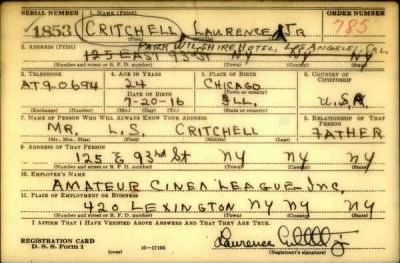 SERIAL NUMBER 1. NAME (Print) ORDER NUMBER
1853 CRITCHELL LAURENCE JR 785
(First) (Middle) (Last)
2. ADDRESS (Print) PARK WILSHIRE HOTEL, LOS ANGELES, CAL.
125 EAST 93 ST NY NY NY
(Number and street or R. F. D. number) (Town) (County) (State)
3. TELEPHONE 4. AGE IN YEARS 5. PLACE OF BIRTH 6. COUNTRY OF CITIZENSHIP
AT 9-0694 24 CHICAGO
DATE OF BIRTH (Town or county)
7-20-16 ILL. U.S.A.
(Exchange) (Number) (Mo.) (Day) (Yr.) (State or country)
7. NAME OF PERSON WHO WILL ALWAYS KNOW YOUR ADDRESS 8. RELATIONSHIP OF THAT PERSON
MR. L.S. CRITCHELL FATHER
(Mr., Mrs., Miss) (First) (Middle) (Last)
9. ADDRESS OF THAT PERSON
125 E 93rd St NY NY NY
(Number and street or R. F. D. number) (Town) (County) (State)
10. EMPLOYER'S NAME
AMATEUR CINEA LEAGUE INC.
11. PLACE OF EMPLOYMENT OR BUSINESS
420 LEXINGTON NY NY NY
(Number and street or R. F. D. number) (Town) (County) (State)
I AFFIRM THAT I HAVE VERIFIED ABOVE ANSWERS AND THAT THEY ARE TRUE.
REGISTRATION CARD
D. S. S. Form 1 (over) 16—17105 (Registrant's signature)